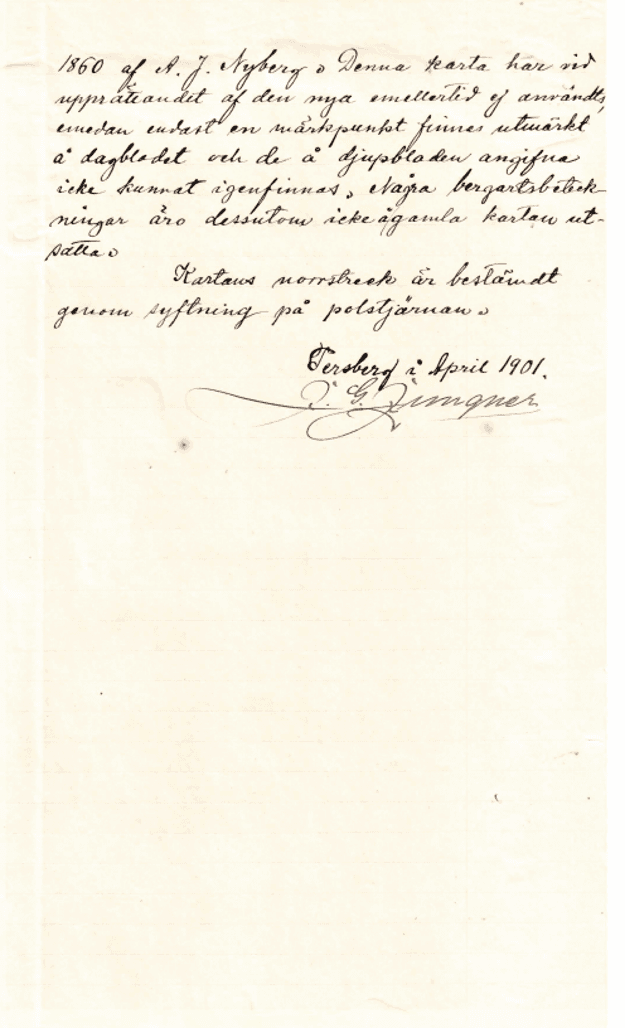 1860 af A. J. Nyberg. Denna karta har vid
upprättandet af den nya emellertid ej användts,
emedan endast en märkpunkt finnes utmärkt
å dagbladet och de å djupbladen angifna
icke kunnat igenfinnas. Några bergartsbeteck-
ningar äro dessutom icke å gamla kartan ut-
satta.
Kartans norrstreck är bestämdt
genom syftning på polstjärnan.
Persberg i April 1901.
G. Ljungner